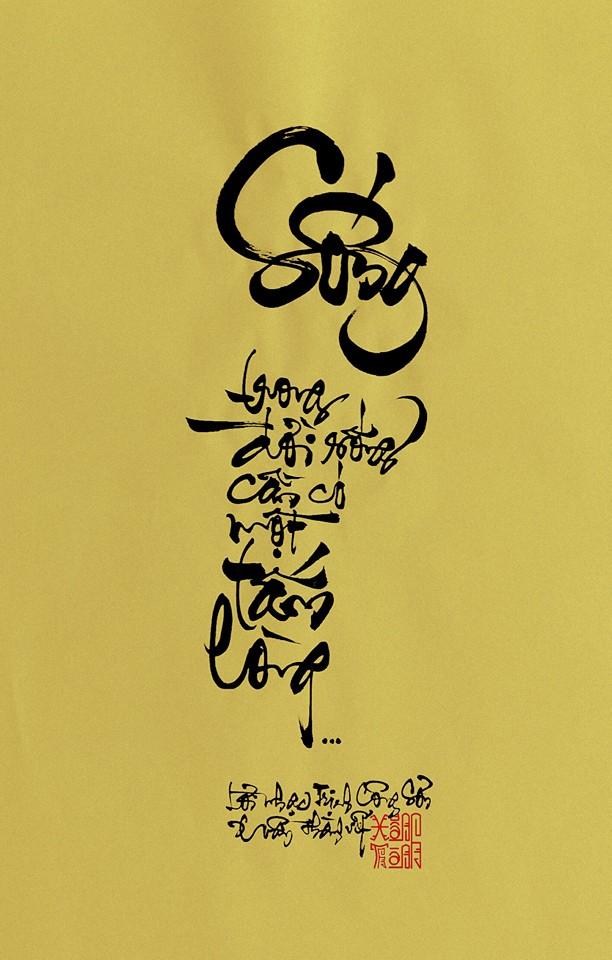 Sống
trong
đời sống
cần có
một
tấm
lòng...
Lời nhạc Trịnh Công Sơn